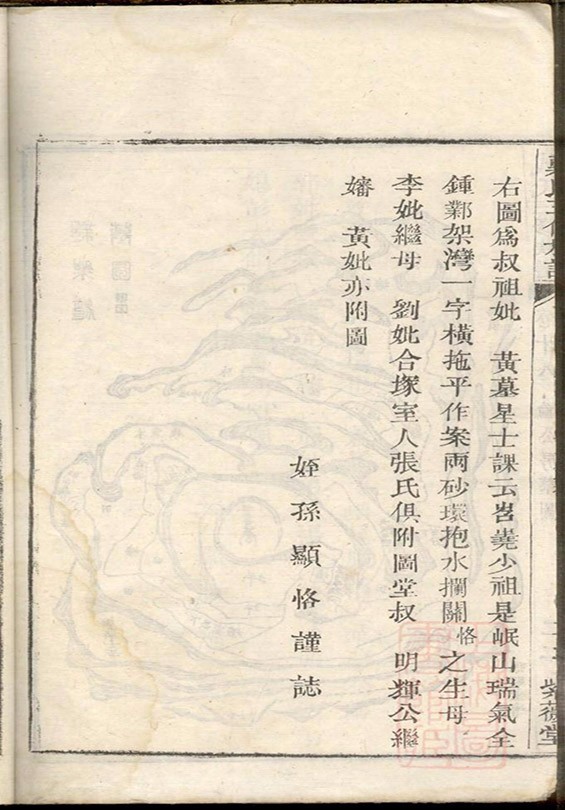 右圖爲叔祖妣 黃墓星士課云岧嶤少祖是岷山瑞氣全
鍾鄴架灣一字橫拖平作案兩砂環抱水攔關恪之生母
李妣繼母 劉妣合塚室人張氏俱附圖堂叔 明輝公繼
嬸 黃妣亦附圖
姪孫顯恪謹誌
紫薇堂